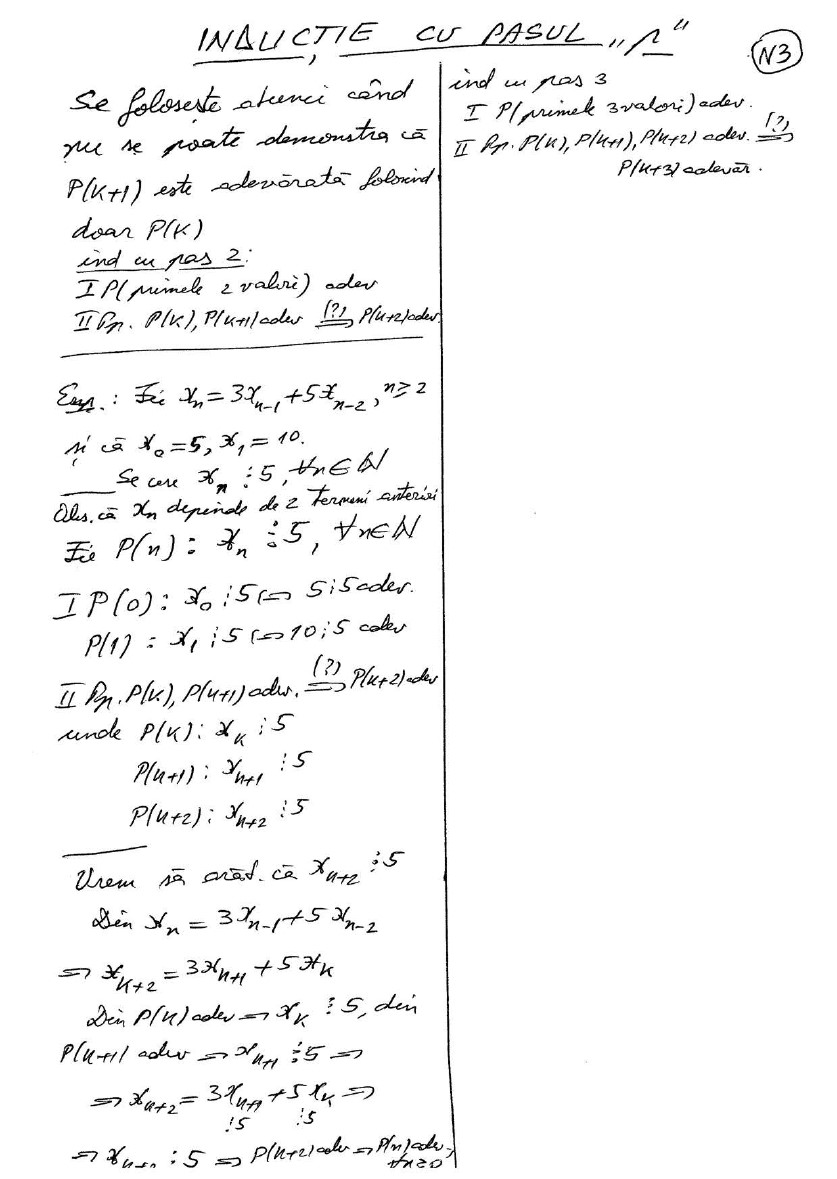 INDUCȚIE CU PASUL „r"
N3
Se folosește atunci când
nu se poate demonstra că
P(k+1) este adevărată folosind
doar P(k)
ind cu pas 2:
I P(primele 2 valori) adev
II Pp. P(k), P(k+1) adev (?)⟹ P(k+2) adev.
Exp.: Fie xₙ = 3xₙ₋₁ + 5xₙ₋₂, n ≥ 2
și că x₀ = 5, x₁ = 10.
Se cere xₙ ⋮ 5, ∀n∈ℕ
Obs. că xₙ depinde de 2 termeni anteriori
Fie P(n): xₙ ⋮ 5, ∀n∈ℕ
I P(0): x₀ ⋮ 5 ⟺ 5 ⋮ 5 adev.
P(1): x₁ ⋮ 5 ⟺ 10 ⋮ 5 adev
II Pp. P(k), P(k+1) adev. (?)⟹ P(k+2) adev
unde P(k): xₖ ⋮ 5
P(k+1): xₖ₊₁ ⋮ 5
P(k+2): xₖ₊₂ ⋮ 5
Vrem să arăt. că xₖ₊₂ ⋮ 5
Din xₙ = 3xₙ₋₁ + 5xₙ₋₂
⟹ xₖ₊₂ = 3xₖ₊₁ + 5xₖ
Din P(k) adev ⟹ xₖ ⋮ 5, din
P(k+1) adev ⟹ xₖ₊₁ ⋮ 5 ⟹
⟹ xₖ₊₂ = 3xₖ₊₁ + 5xₖ ⟹
⋮5 ⋮5
⟹ xₖ₊₂ ⋮ 5 ⟹ P(k+2) adev ⟹ P(n) adev,
∀n≥0
ind cu pas 3
I P(primele 3 valori) adev.
II Pp. P(k), P(k+1), P(k+2) adev. (?)⟹
P(k+3) adevăr.